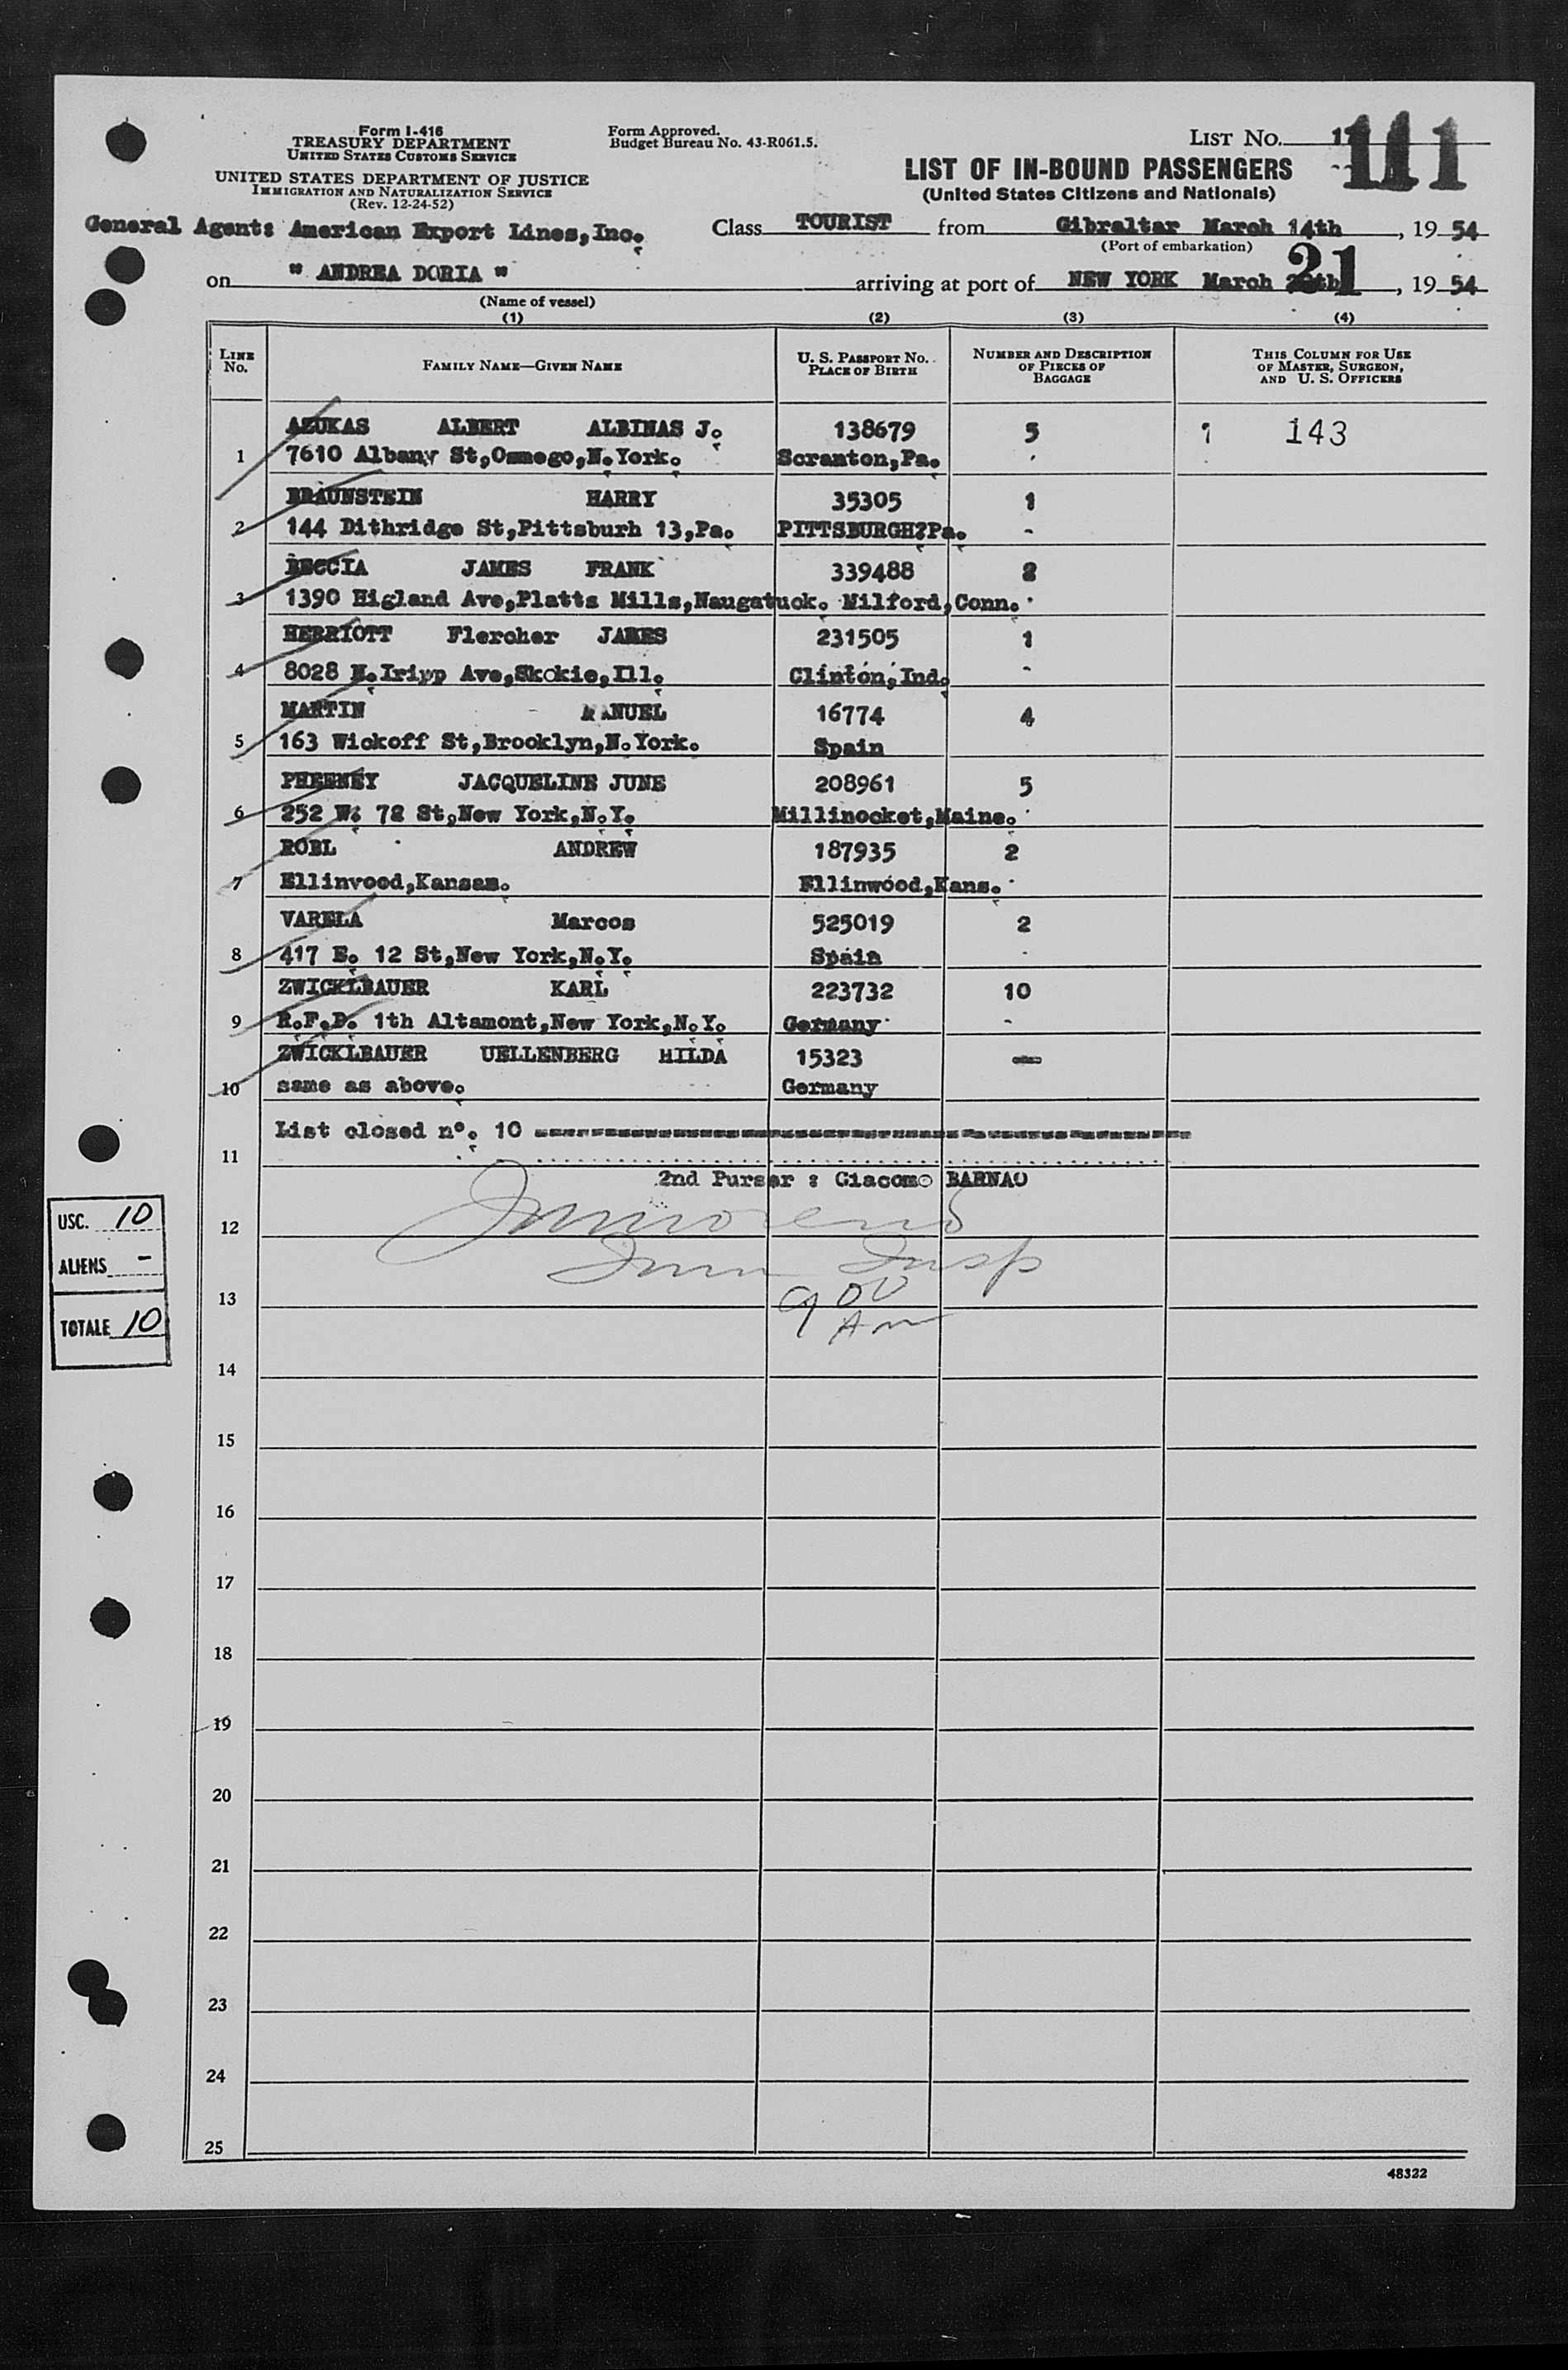 Form I-416
TREASURY DEPARTMENT
UNITED STATES CUSTOMS SERVICE
UNITED STATES DEPARTMENT OF JUSTICE
IMMIGRATION AND NATURALIZATION SERVICE
(Rev. 12-24-52)
Form Approved.
Budget Bureau No. 43-R061.5.
LIST No. 111
LIST OF IN-BOUND PASSENGERS
(United States Citizens and Nationals)
General Agent: American Export Lines,Inc. Class TOURIST from Gibraltar March 14th, 1954
(Port of embarkation)
on " ANDREA DORIA " arriving at port of NEW YORK March 21, 1954
(Name of vessel)
(1) (2) (3) (4)
LINE No. FAMILY NAME—GIVEN NAME U. S. PASSPORT NO. PLACE OF BIRTH NUMBER AND DESCRIPTION OF PIECES OF BAGGAGE THIS COLUMN FOR USE OF MASTER, SURGEON, AND U. S. OFFICERS
AZUKAS ALBERT ALBINAS J. 138679 5 143
1 7610 Albany St,Osmego,N.York. Scranton,Pa.
BRAUNSTEIN HARRY 35305 1
2 144 Dithridge St,Pittsburh 13,Pa. PITTSBURGH?Pa. -
BECCIA JAMES FRANK 339488 2
3 1390 Higland Ave,Platts Mills,Naugatuck. Milford,Conn.
HERRIOTT Flercher JAMES 231505 1
4 8028 N.Iripp Ave,Skokie,Ill. Clinton,Ind. -
MARTIN MANUEL 16774 4
5 163 Wickoff St,Brooklyn,N.York. Spain
PHEENEY JACQUELINE JUNE 208961 5
6 252 W: 72 St,New York,N.Y. Millinocket,Maine.
ROBL ANDREW 187935 2
7 Ellinvood,Kansas. Ellinwood,Kans.
VARELA Marcos 525019 2
8 417 E. 12 St,New York,N.Y. Spain
ZWICKLBAUER KARL 223732 10
9 R.F.D. 1th Altamont,New York,N.Y. Germany -
ZWICKLBAUER UELLENBERG HILDA 15323 —
10 same as above. Germany
List closed n°. 10
11
2nd Purser : Giacomo BARNAO
USC. 10
12
ALIENS -
Imm Insp
13
9 00
TOTALE 10
AM
14
15
16
17
18
19
20
21
22
23
24
25
48322